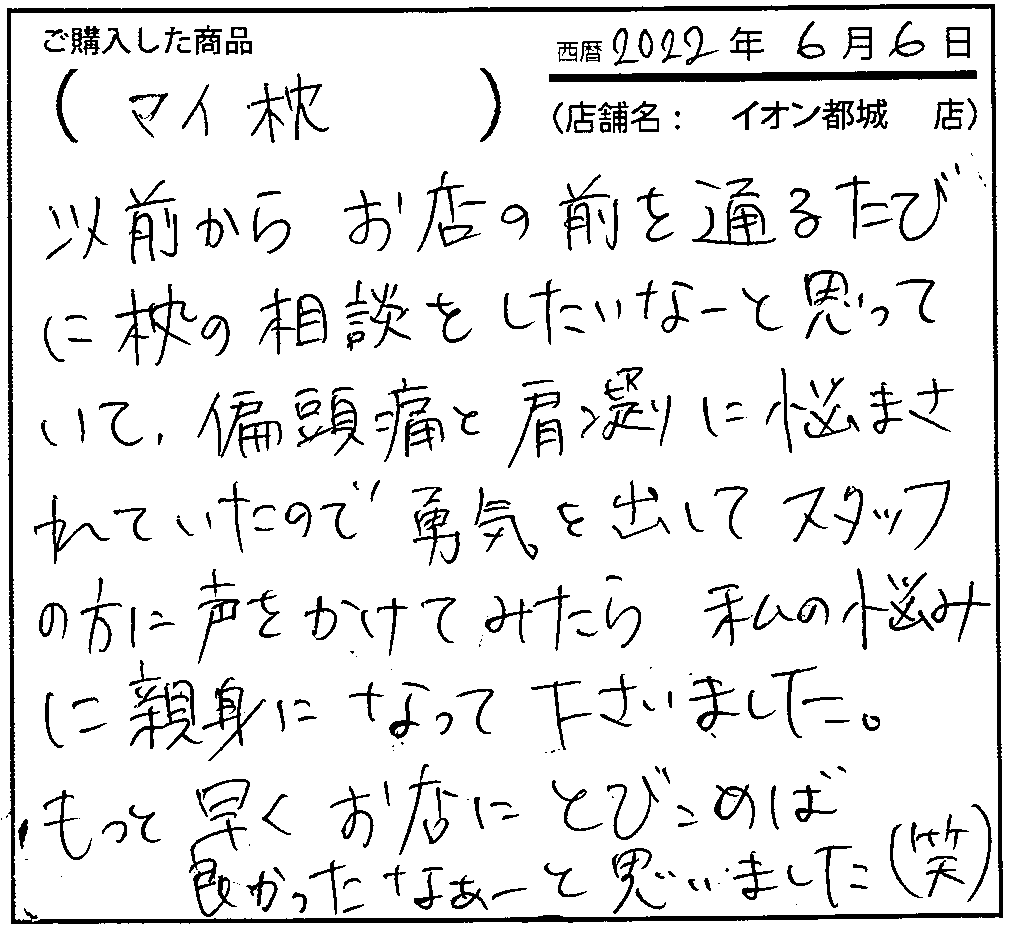 ご購入した商品
西暦 2022年 6月 6日
( マイ枕 )
(店舗名: イオン都城 店)
以前から お店の前を通るたび
に枕の相談をしたいなーと思って
いて、偏頭痛と肩凝りに悩まさ
れていたので勇気を出してスタッフ
の方に声をかけてみたら 私の悩み
に親身になって下さいました。
もっと早くお店にとびこめば
良かったなぁーと思いました(笑)